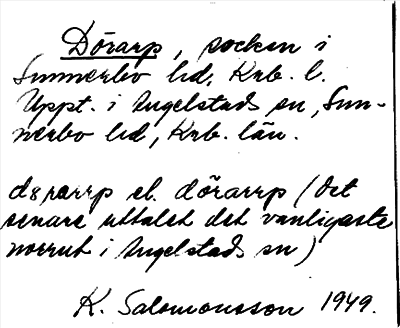 Dörarp, socken i
Sunnerbo hd, Krb. l.
Uppt. i Angelstads sn, Sun-
nerbo hd, Krb. län.
dörarrp el. dörarrp (det
senare uttalet det vanligaste
norrut i Angelstads sn)
K. Salomonsson 1949.